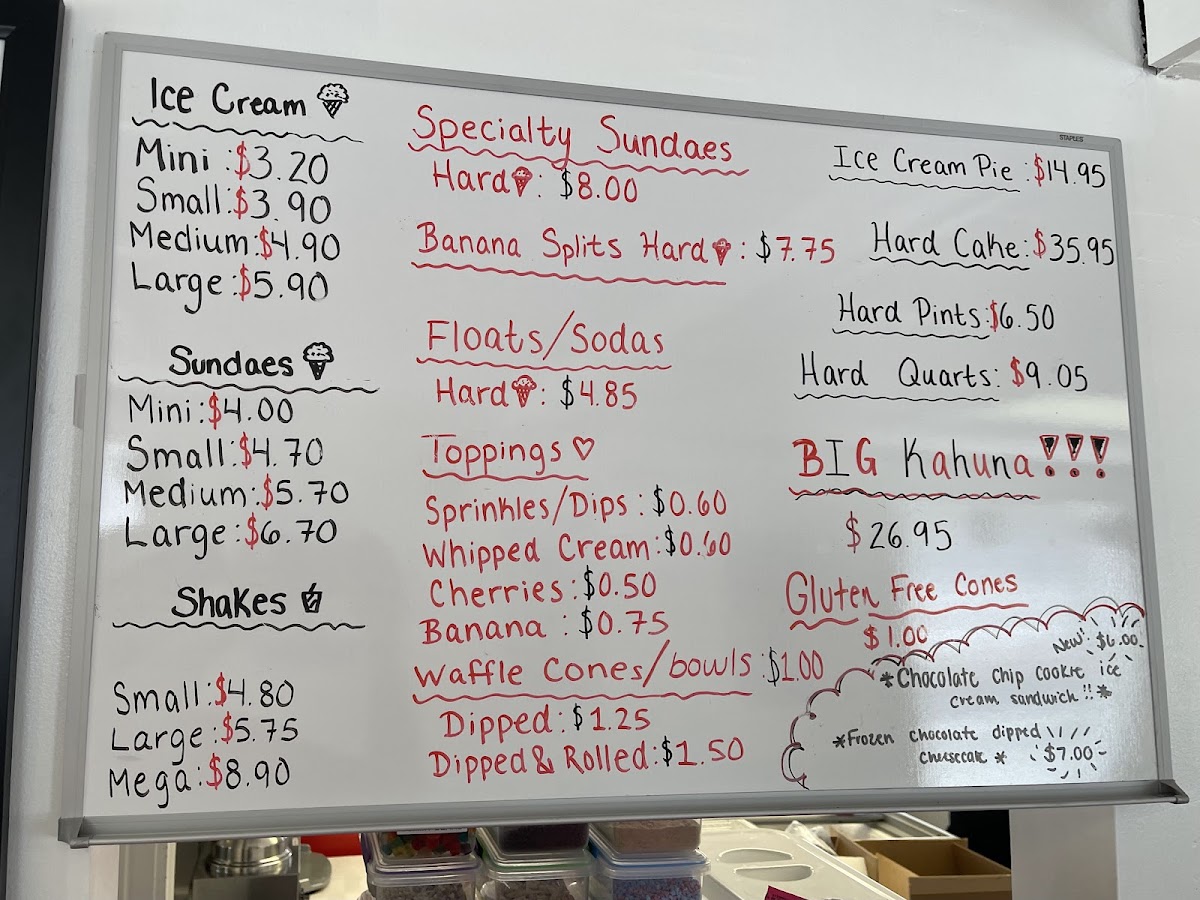 Ice Cream
Mini : $3.20
Small: $3.90
Medium: $4.90
Large: $5.90
Sundaes
Mini: $4.00
Small: $4.70
Medium: $5.70
Large: $6.70
Shakes
Small: $4.80
Large: $5.75
Mega: $8.90
Specialty Sundaes
Hard: $8.00
Banana Splits Hard: $7.75
Floats/Sodas
Hard: $4.85
Toppings
Sprinkles/Dips: $0.60
Whipped Cream: $0.60
Cherries: $0.50
Banana : $0.75
Waffle Cones/bowls: $1.00
Dipped: $1.25
Dipped & Rolled: $1.50
STAPLES
Ice Cream Pie: $14.95
Hard Cake: $35.95
Hard Pints: $6.50
Hard Quarts: $9.05
BIG Kahuna!!!
$26.95
Gluten Free Cones
$1.00
New! $6.00
*Chocolate chip cookie ice
cream sandwich!!*
*Frozen chocolate dipped
cheesecake * $7.00